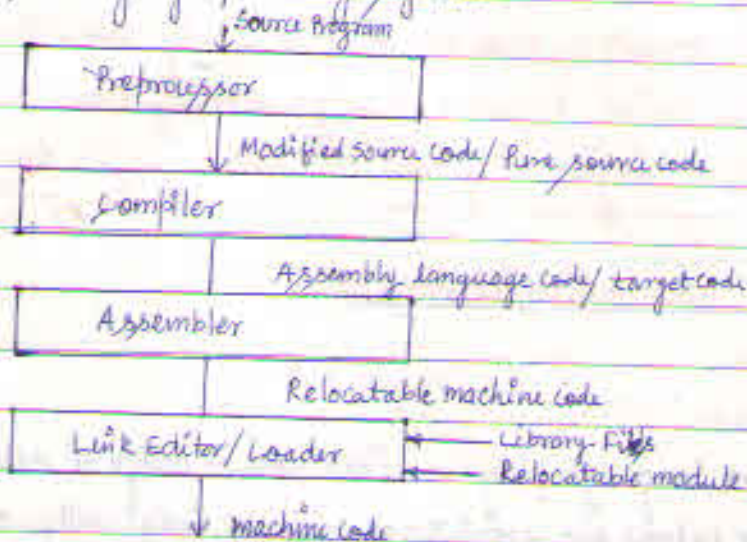 Source Program
Preprocessor
Modified source code/ Pure source code
Compiler
Assembly language code/ target code
Assembler
Relocatable machine code
Link Editor/ Loader
Library Files
Relocatable module
machine code